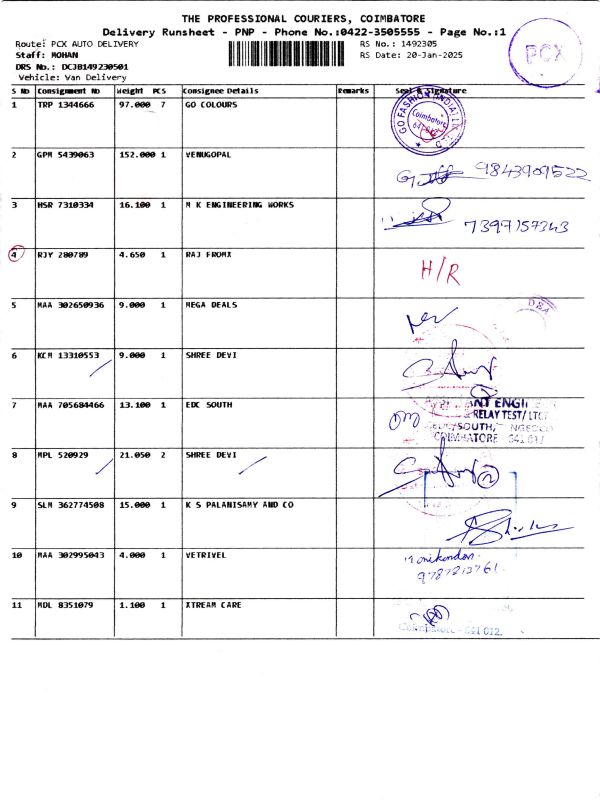 THE PROFESSIONAL COURIERS, COIMBATORE
Delivery Runsheet - PNP - Phone No.:0422-3505555 - Page No.:1
Route: PCX AUTO DELIVERY RS No.: 1492305
Staff: MOHAN RS Date: 20-Jan-2025
DRS No.: DCJB149230501
Vehicle: Van Delivery
PCX
S No Consignment No Weight PCS Consignee Details Remarks Seal & Signature
1 TRP 1344666 97.000 7 GO COLOURS
GO FASHION (INDIA) Coimbatore
2 GPM 5439063 152.000 1 VENUGOPAL
9843909522
3 HSR 7310334 16.100 1 M K ENGINEERING WORKS
7397157343
4 RJY 280789 4.650 1 RAJ FROMX H/R
5 MAA 302650936 9.000 1 MEGA DEALS
6 KCM 13310553 9.000 1 SHREE DEVI
7 MAA 705684466 13.100 1 EDC SOUTH
RELAY TEST/
SOUTH,
COIMBATORE 641
8 MPL 520929 21.050 2 SHREE DEVI 2
9 SLM 362774508 15.000 1 K S PALANISAMY AND CO
10 MAA 302995043 4.000 1 VETRIVEL
11 MDL 8351079 1.100 1 XTREAM CARE
Coimbatore - 641 012.